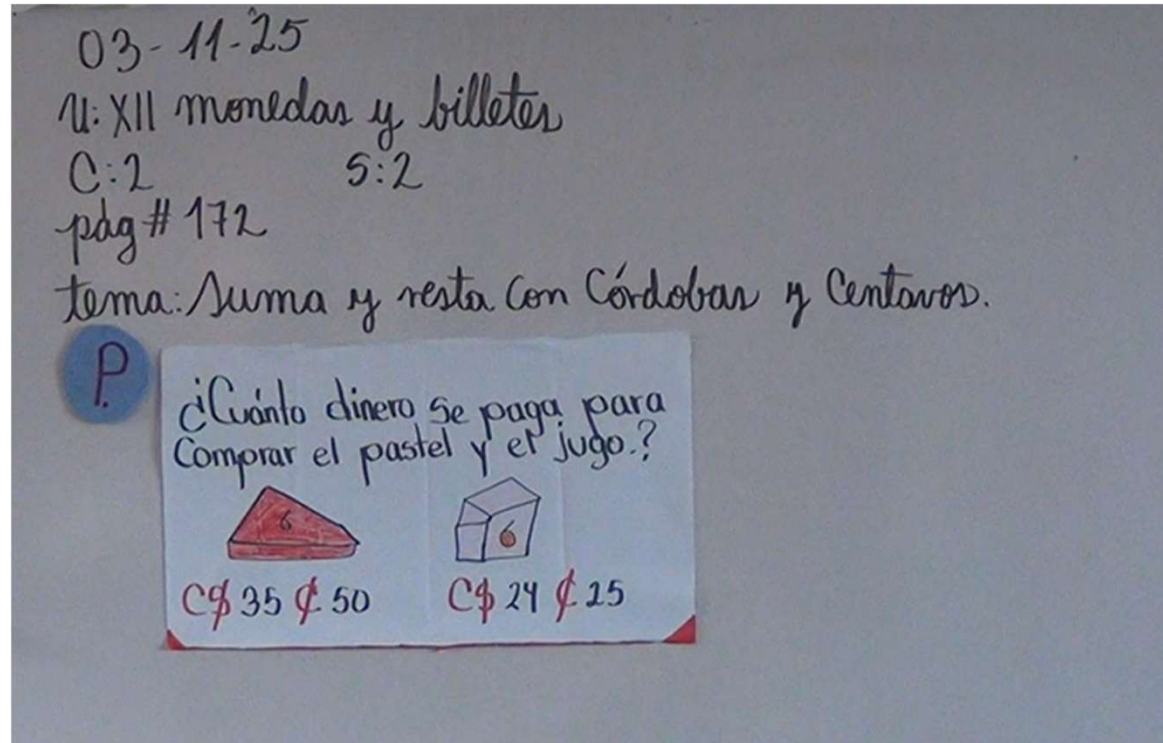 03-11-25
U: XII monedas y billetes
C:2 S:2
pág # 172
tema: Suma y resta con Córdobas y Centavos.
P.
¿Cuánto dinero se paga para
Comprar el pastel y el jugo.?
6 6
C$ 35 ₵ 50 C$ 24 ₵ 25